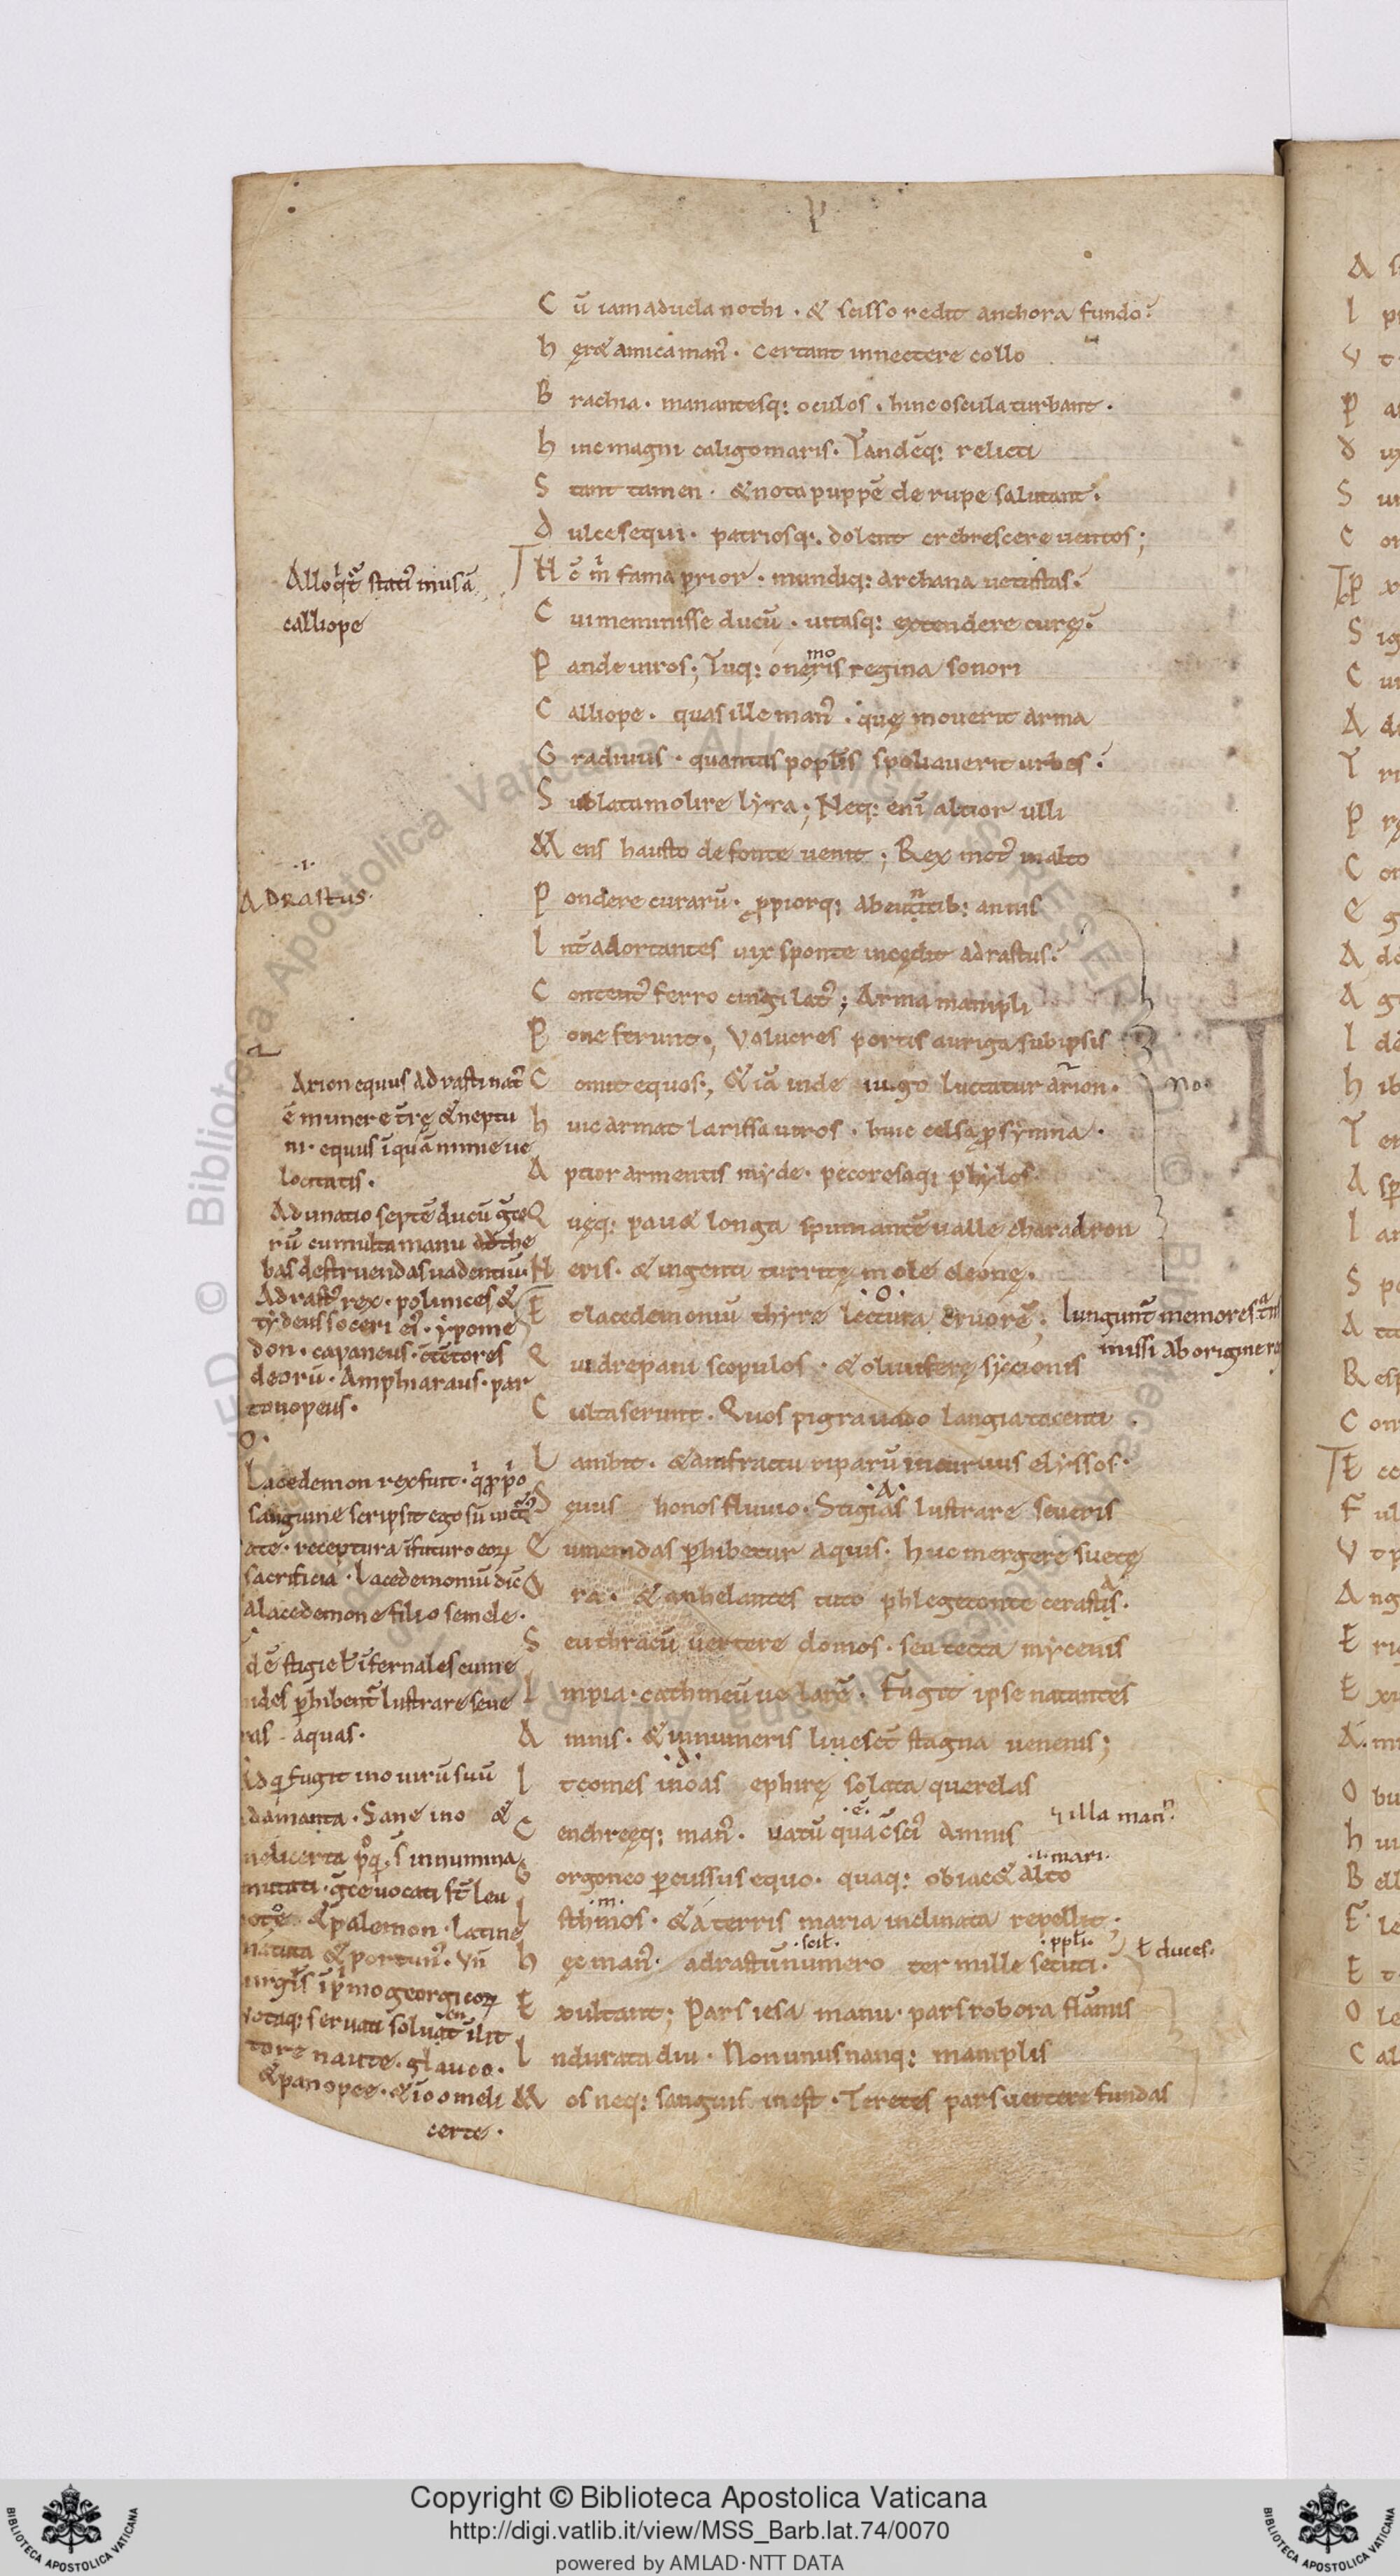 C ū iam ad uela nothi · & scisso redit anchora fundo?
h ęr& amica man᷒ · certant innectere collo
B rachia · manantesq: oculos · hinc oscula turbant ·
h inc magni caligo maris · Tandēq: relicti
S tant tamen · & nota puppē de rupe salutant ·
D ulce sequi · patriosq: dolent crebrescere uentos ;
N c̄ m̄ fama prior · mundiq: archana uetustas ·
C ui meminisse ducū · uitasq: extendere curę ·
P ande uiros ; Tuq: onęris regina sonori
mo
C alliope · quas ille man᷒ · quę mouerit arma
G radiuus · quantas popl̄is spoliauerit urbes ·
S ublata molire lyra ; Neq: enī altior ulli
M ens hausto de fonte uenit ; Rex mot᷒ malto
P ondere curarū · ꝓpiorq: abeuntib: annis
I nt̄ adortantes uix sponte incędit adrastus ·
C ontent᷒ ferro cingi lat᷒ ; Arma manipli
P one ferunt ; Volucres portis auriga sub ipsis
C omit equos ; & iā inde iugo luctatur arion ·
h uic armat larissa uiros · huic celsa ꝓsymna ·
A ptior armentis myde · pecoresaq: phylos
Q uęq: pau& longa spumantē ualle charadron
N eris · & ingenti turritę mole cleonę ·
E t lacedemoniū thyre lectura cruorē ; Iungunt̄ memores
missi ab origine
Q ui drepani scopulos · & oliuiferę sycionis
C ulta serunt · Quos pigra uado langia tacenti
L ambit · & amfractu riparū incuruus elyssos ·
S ęuus honos fluuio · Stigias lustrare seueris
E umenidas phibetur aquis · huc mergere suetę
O ra · & anhelantes tuto phlegetonte cerastis ·
S eu thracū uertere domos · seu tecta mycenis
I mpia · cathmeū ue larē · Fugit ipse natantes
A mnis · & innumeris liuescit stagna uenenis ;
I t comes inoas ephirę solata querelas
C enchreęq: man᷒ · uatū qua c̄sci᷒ amnis
illa man᷒
G orgoneo pcussus equo · quaq: obiac& alto
mari ·
I sthmos · & a terris maria inclinata repellit ·
h ęc man᷒ · adrastū numero ter mille secuti ·
scil · ppl̄i · ł duces ·
E xultant ; Pars iesa manu · pars robora flāmis
I ndurata diu · Non unus nanq: maniplis
M os neq: sanguis inest · Teretes pars uertere fundas
No ·
Alloqt̄ stati᷒ musā
calliope
· 1 ·
ADRASTUS ·
Arion equus adrasti nat᷒
ē munere t̄rę & neptu
ni · equus īquā nimie ue
locitatis ·
Adunatio septē ducū gͣeco
rū cum multa manu ad the
bas destruendas uadentiū
Adrast᷒ rex · polinices &
tydeus soceri ei᷒ · ypome
don · capaneus · c̄tētores
deorū · Amphiaraus · par
tonopeus ·
O ·
Lacedemon rex fuit · q̇ ꝓpo
sanguine scripsit ego sū
ate · receptura ī futuro eoꝝ
sacrificia · Lacedemoniū dic̄
a lacedemone filio semele ·
de stigie ł īfernales eume
nides phibent̄ lustrare seue
ras aquas ·
Ad q fugit ino uirū suū
adamanta · Sane ino &
melicerta · in numina
mutati · gͣce uocati st̄ leu
cote · & palemon · latine
matuta & portun᷒ · Vn̄
uirgl̄s ī pmo georgicoꝝ
Votaq: seruati soluent ī lit
tore naute · glauco ·
& panopee · & ino o meli
certe ·
Copyright © Biblioteca Apostolica Vaticana
http://digi.vatlib.it/view/MSS_Barb.lat.74/0070
powered by AMLAD·NTT DATA